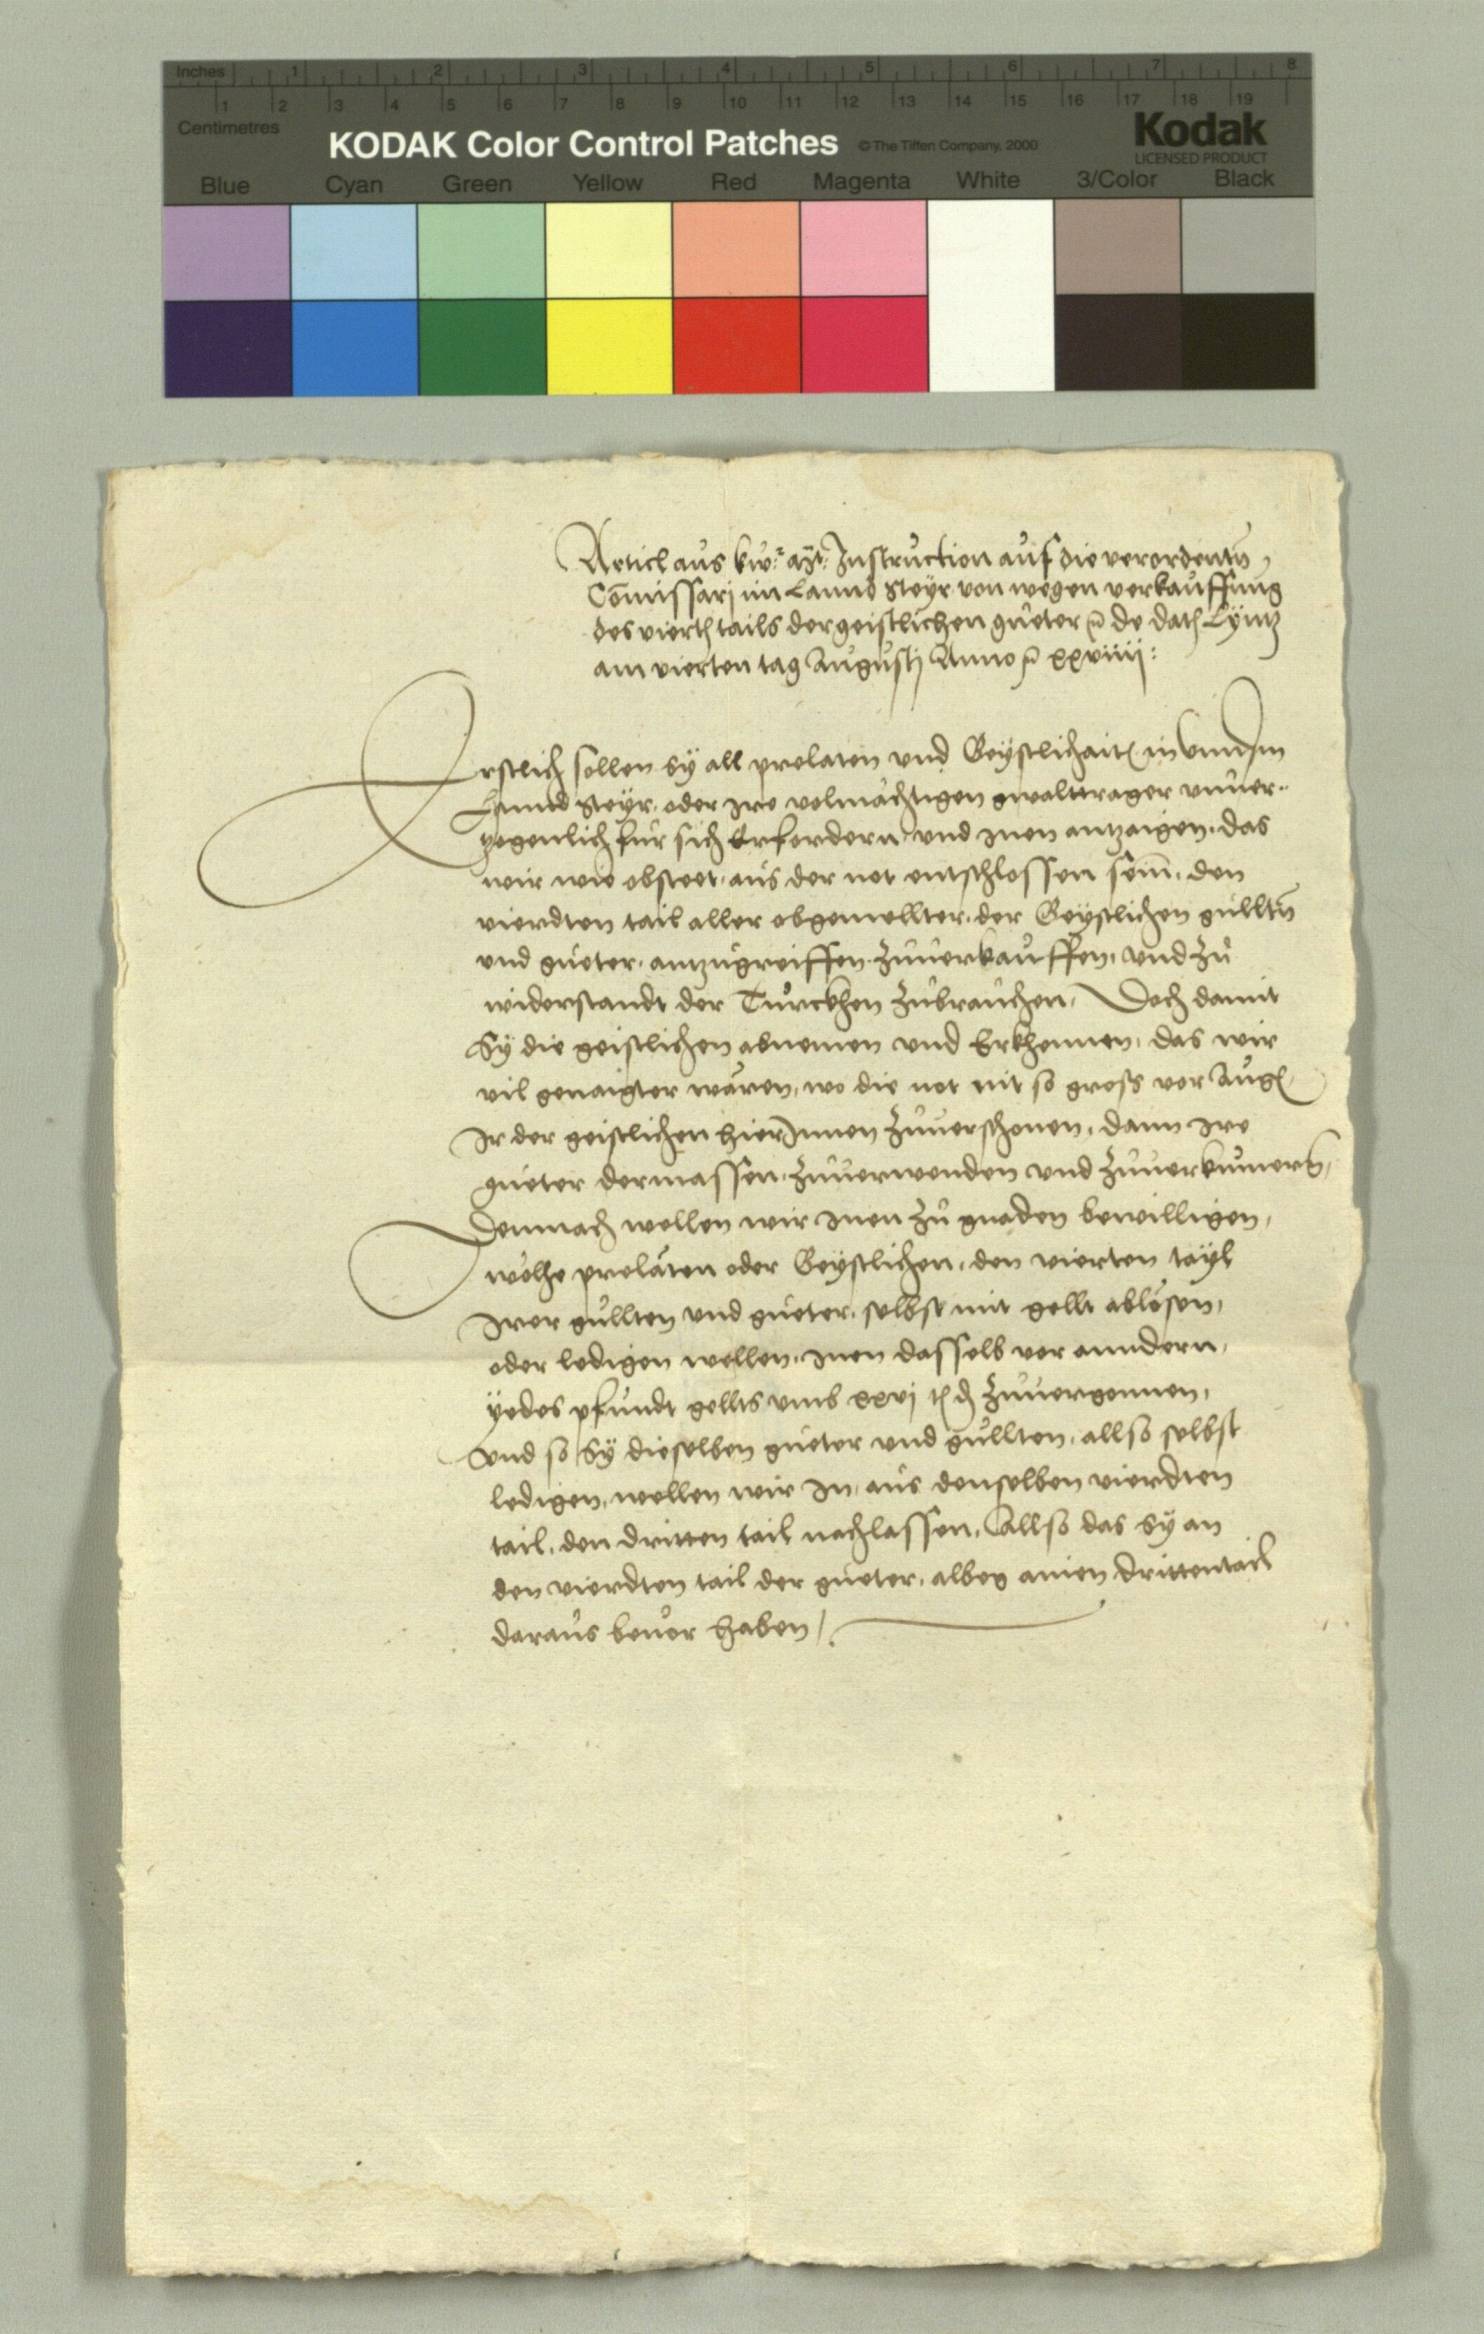 Inches 1 2 3 4 5 6 7 8
1 2 3 4 5 6 7 8 9 10 11 12 13 14 15 16 17 18 19
Centimetres
KODAK Color Control Patches © The Tiffen Company, 2000 Kodak
LICENSED PRODUCT
Blue Cyan Green Yellow Red Magenta White 3/Color Black
Articl aus Instruction auf die verordentn
Comissarj im Lannd Steyr von wegen verkauffung
des viert tails der geistlichen gueter de dato Lyntz
am vierten tag Augustj Anno xxviiij:
Erstlich sollen Sy all prelaten vnd Geystlichait in vnnserm
Lannd Steyr, oder Ire volmächtigen gwalttrager vnuer¬
tzogenlich für sich Erfordern vnd Inen antzaigen, das
wir wie obsteet, aus der not entschlossen sein, den
vierdten tail aller obgemellter, der Geystlichen gülltn
vnd güeter, antzugreiffen zuuerkauffen, vnd zu
widerstandt der Türckhen zubrauchen, Doch damit
Sy die geistlichen abnemen vnd Erkhennen, das wir
vil genaigter wären, wo die not nit so gross vor Aug
Ir der geistlichen hierInnen zuuerschonen, dann Ire
güeter dermassen, zuuerwenden vnd zuuerkumern,
Demnach wellen wir Inen zu gnaden bewilligen,
welhe prelaten oder Geystlichen, den vierten tayl
Irer güllten vnd güeter, selbst mit gellt ablösen,
oder ledigen wellen, Inen dasselb vor anndern,
yedes pfundt gellts vmb xxvj zuuergonnen,
vnd so Sy dieselben güeter vnd güllten, allso selbst
ledigen, wellen wir In, aus denselben vierdten
tail, den dritten tail nachlassen, Allso das Sy an
den vierdten tail der güeter, albeg ainen drittentail
daraus beuor haben /.